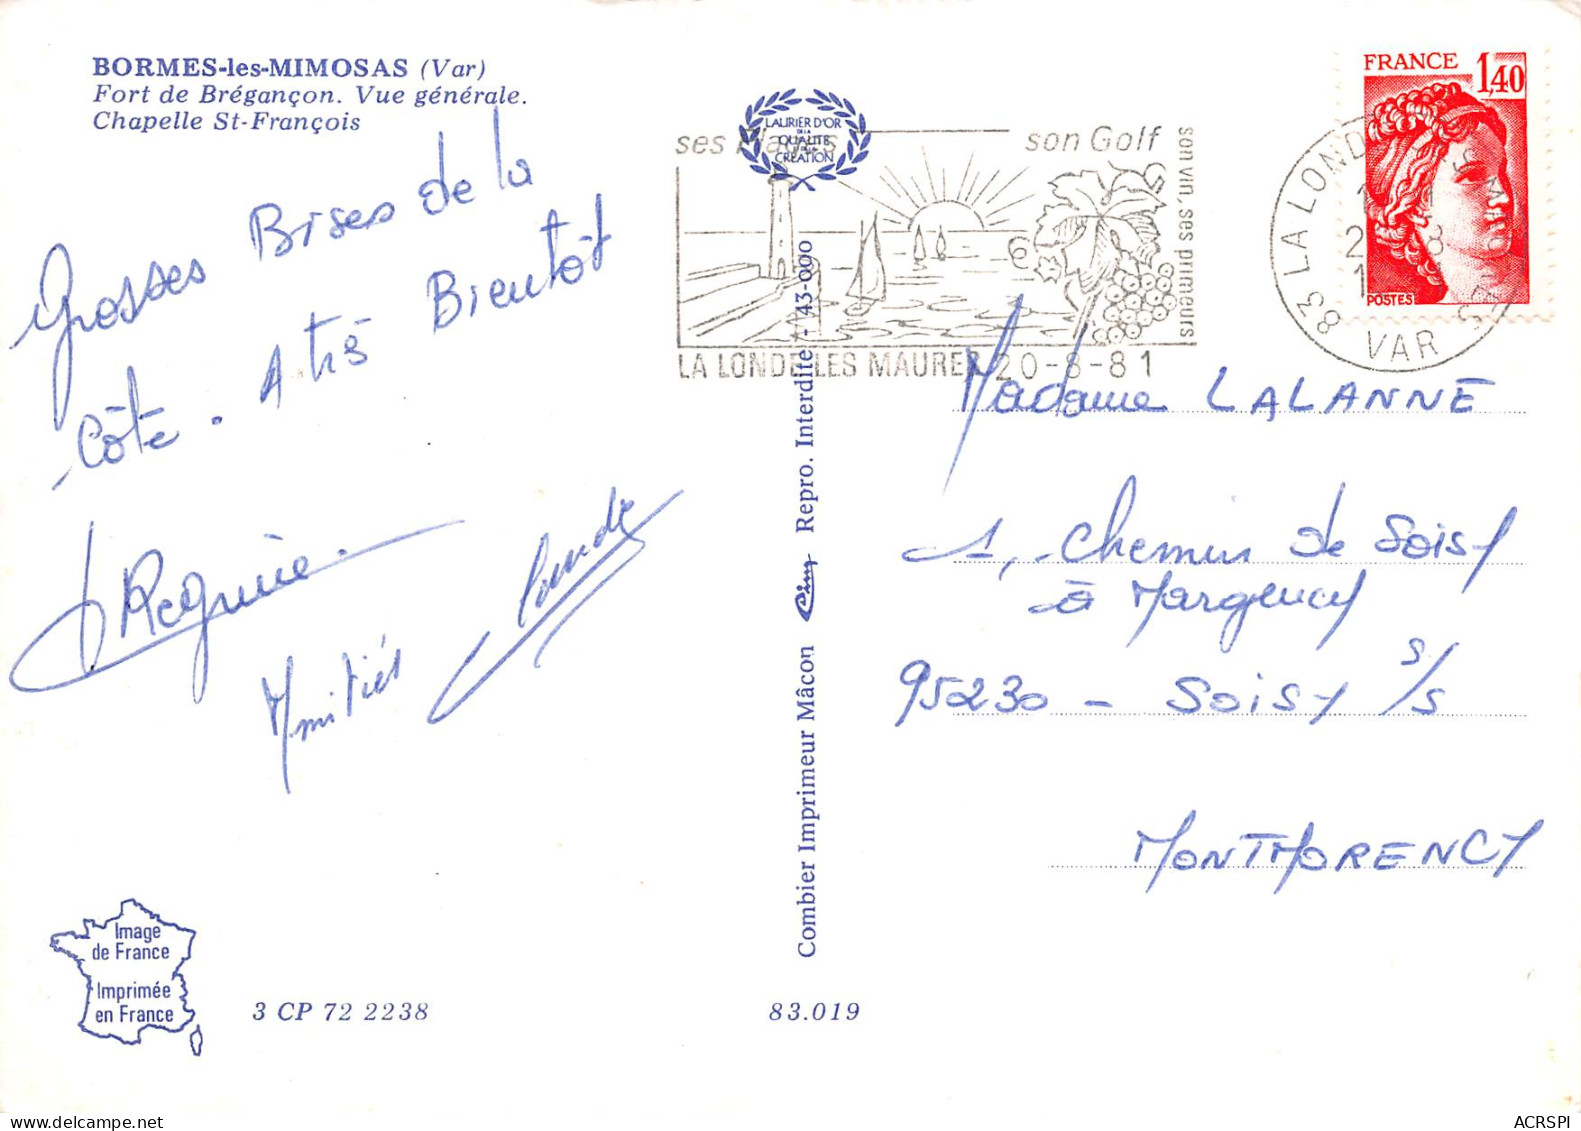 BORMES-les-MIMOSAS (Var)
Fort de Brégançon. Vue générale.
Chapelle St-François
Grosses Bises de la
Côte. A très Bientôt
Amitiés
Claude
LAURIER D'OR
DE LA
QUALITÉ
CRÉATION
ses Plages son Golf
son vin, ses primeurs
LA LONDE LES MAURES 20-8-81
83 LA LONDE
VAR
FRANCE 1,40
POSTES
Madame LALANNE
1, Chemin de Soisy
à Margency
95230 - SOISY s/s
MONTMORENCY
Combier Imprimeur Mâcon Cim Repro. Interdite - 43-000
Image
de France
Imprimée
en France
3 CP 72 2238
83.019
ACRSPI